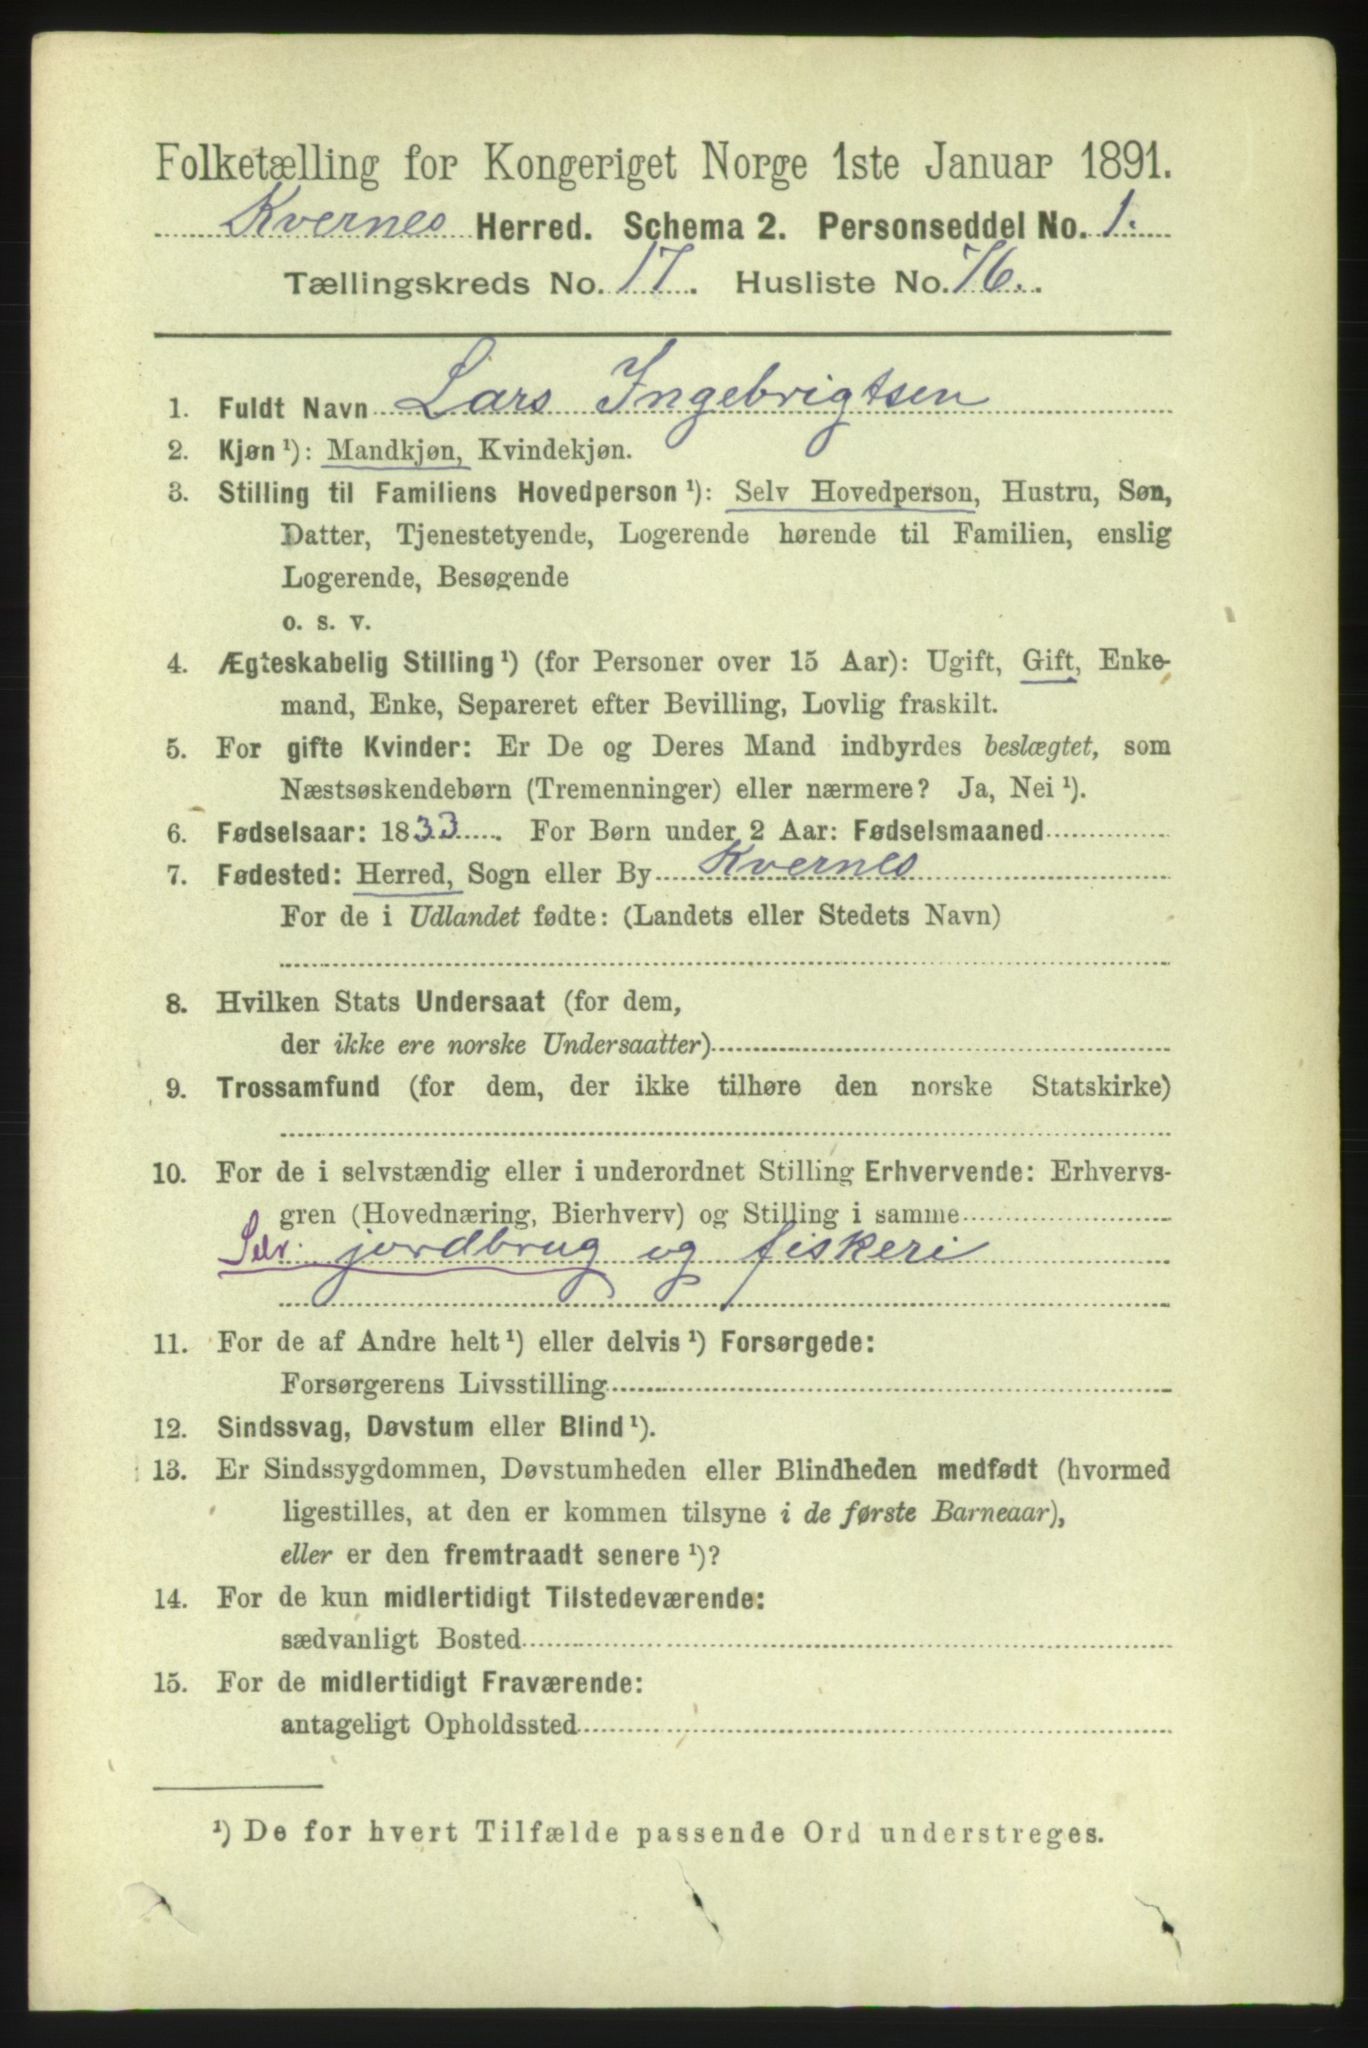 Folketælling for Kongeriget Norge 1ste Januar 1891.
Kvernes Herred. Schema 2. Personseddel No. 1.
Tællingskreds No. 17. Husliste No. 76.
1. Fuldt Navn Lars Ingebrigtsen
2. Kjøn ¹): Mandkjøn, Kvindekjøn.
3. Stilling til Familiens Hovedperson ¹): Selv Hovedperson, Hustru, Søn,
Datter, Tjenestetyende, Logerende hørende til Familien, enslig
Logerende, Besøgende
o. s. v.
4. Ægteskabelig Stilling ¹) (for Personer over 15 Aar): Ugift, Gift, Enke-
mand, Enke, Separeret efter Bevilling, Lovlig fraskilt.
5. For gifte Kvinder: Er De og Deres Mand indbyrdes beslægtet, som
Næstsøskendebørn (Tremenninger) eller nærmere? Ja, Nei ¹).
6. Fødselsaar: 1833. For Børn under 2 Aar: Fødselsmaaned
7. Fødested: Herred, Sogn eller By Kvernes
For de i Udlandet fødte: (Landets eller Stedets Navn)
8. Hvilken Stats Undersaat (for dem,
der ikke ere norske Undersaatter)
9. Trossamfund (for dem, der ikke tilhøre den norske Statskirke)
10. For de i selvstændig eller i underordnet Stilling Erhvervende: Erhvervs-
gren (Hovednæring, Bierhverv) og Stilling i samme
Selv. jordbrug og fiskeri
11. For de af Andre helt ¹) eller delvis ¹) Forsørgede:
Forsørgerens Livsstilling
12. Sindssvag, Døvstum eller Blind ¹).
13. Er Sindssygdommen, Døvstumheden eller Blindheden medfødt (hvormed
ligestilles, at den er kommen tilsyne i de første Barneaar),
eller er den fremtraadt senere ¹)?
14. For de kun midlertidigt Tilstedeværende:
sædvanligt Bosted
15. For de midlertidigt Fraværende:
antageligt Opholdssted
¹) De for hvert Tilfælde passende Ord understreges.